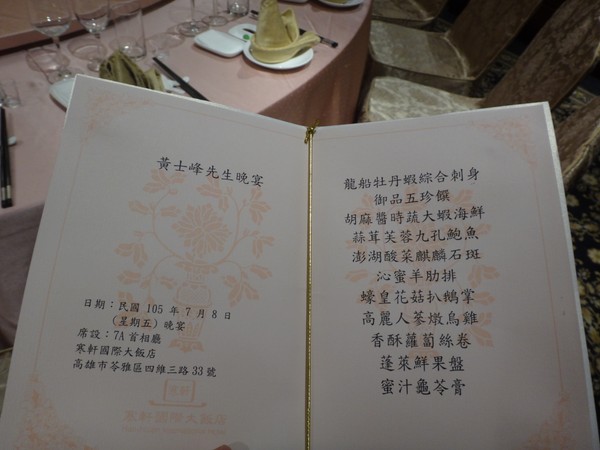 黃士峰先生晚宴
日期：民國 105 年 7 月 8 日
(星期五) 晚宴
席設：7A首相廳
寒軒國際大飯店
高雄市苓雅區四維三路33號
寒軒國際大飯店
龍船牡丹蝦綜合刺身
御品五珍饌
胡麻醬時蔬大蝦海鮮
蒜茸芙蓉九孔鮑魚
澎湖酸菜麒麟石斑
沁蜜羊肋排
蠔皇花菇扒鵝掌
高麗人蔘燉烏雞
香酥蘿蔔絲卷
蓬萊鮮果盤
蜜汁龜苓膏